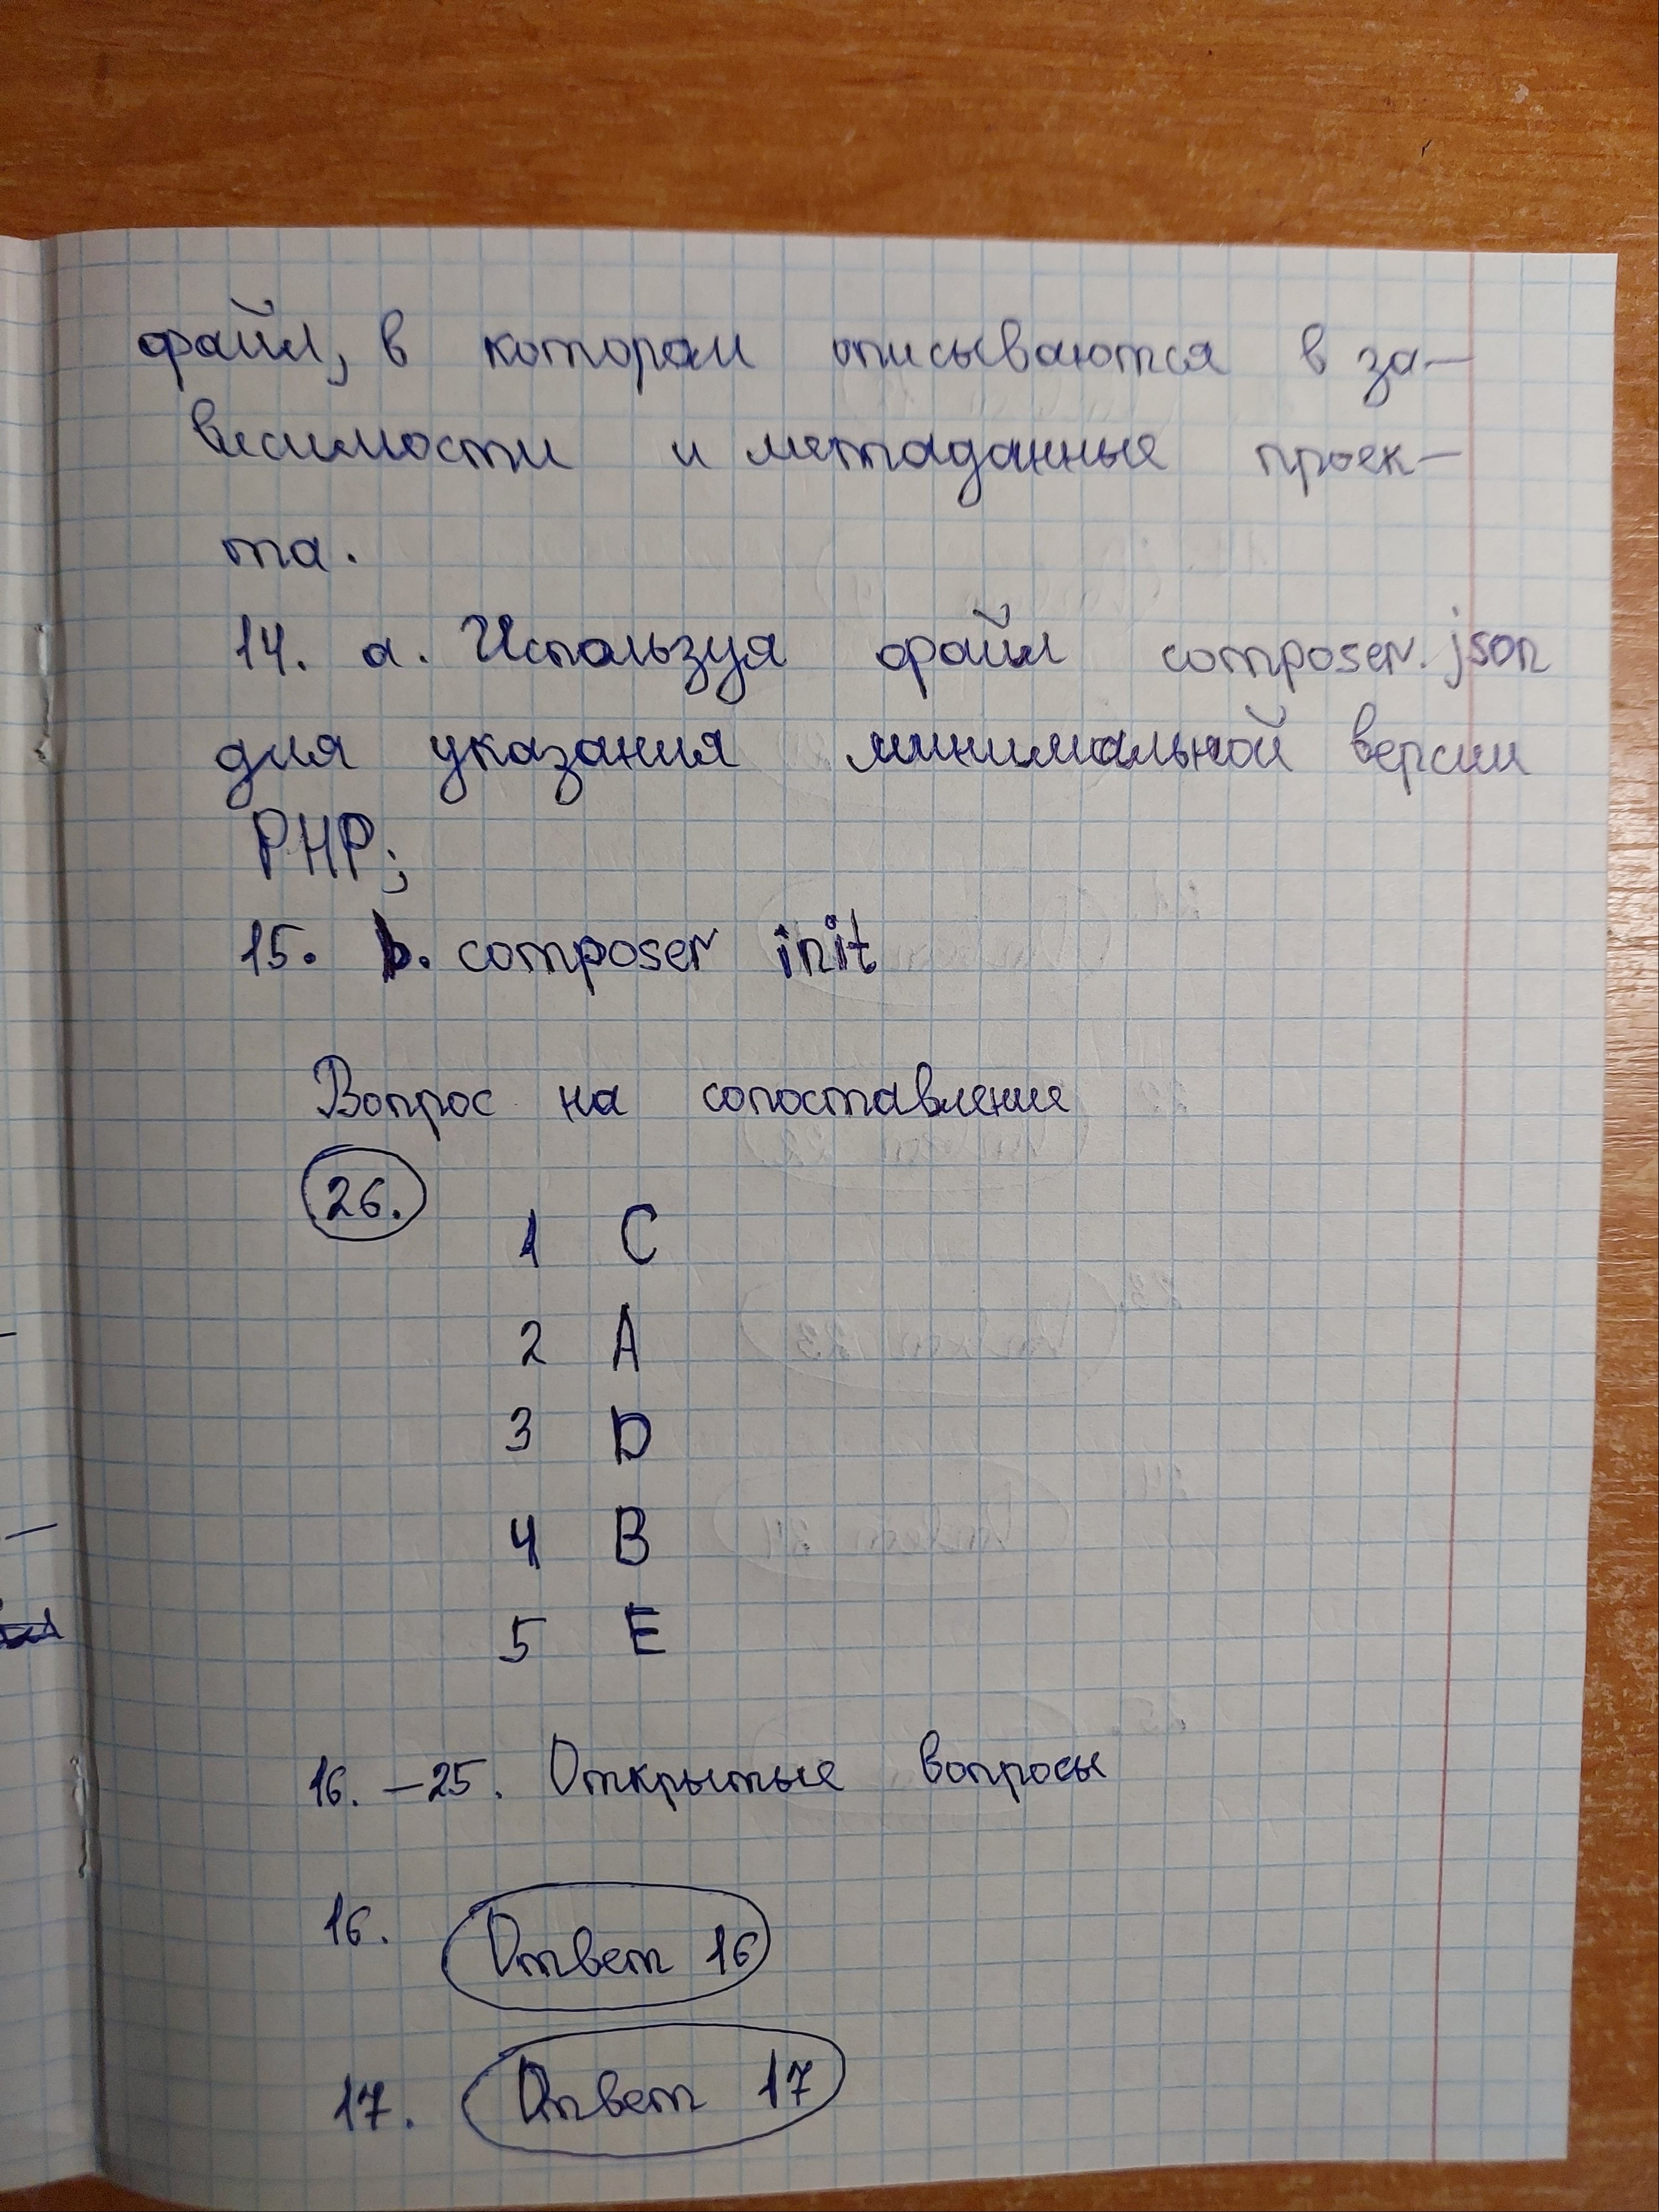 файл, в котором описываются в за-
висимости и метаданные проек-
та.
14. а. Используя файл composer.json
для указания минимальной версии
PHP;
15. b. composer init
Вопрос на сопоставление
26.
1 C
2 A
3 D
4 B
5 E
16. – 25. Открытые вопросы
16. Ответ 16
17. Ответ 17